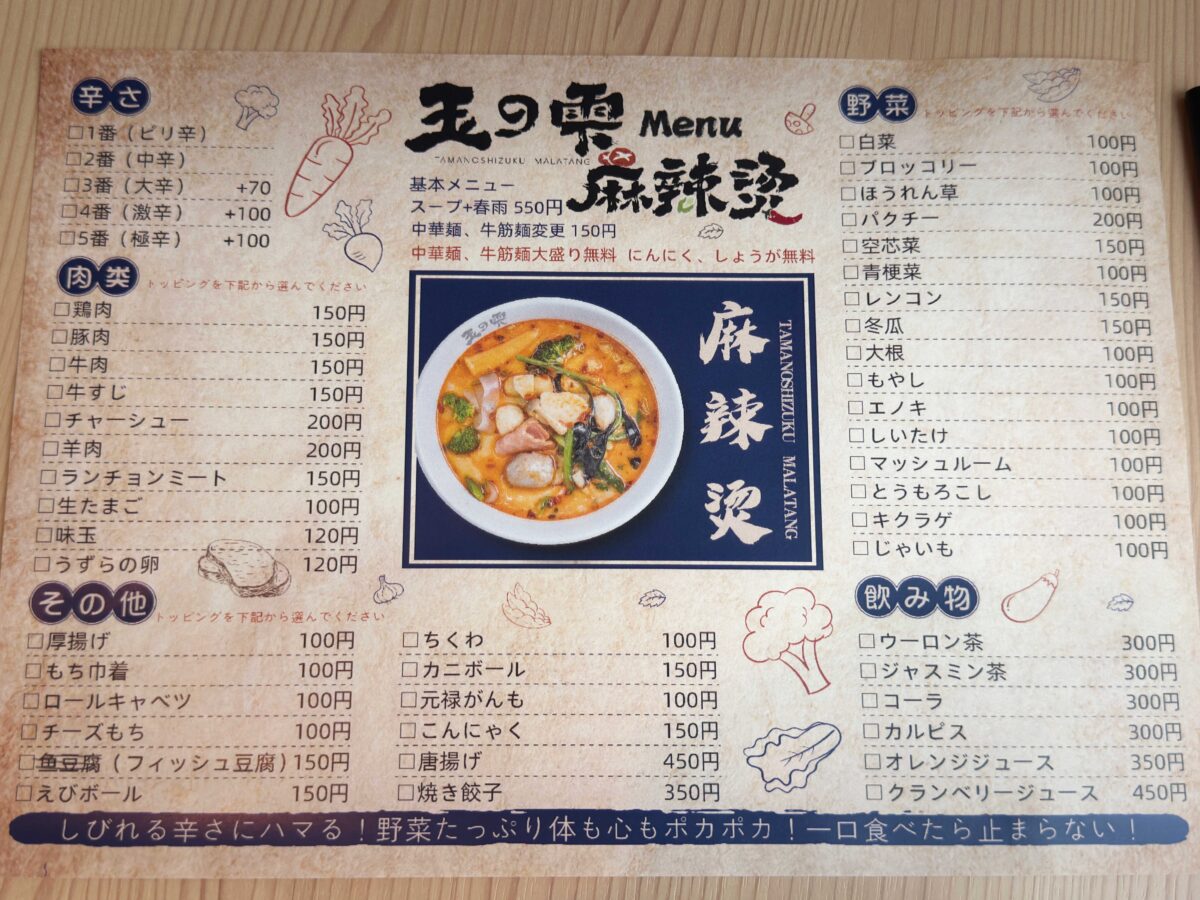 辛さ
□1番（ピリ辛）
□2番（中辛）
□3番（大辛） +70
□4番（激辛） +100
□5番（極辛） +100
玉の雫 Menu
TAMANOSHIZUKU MALATANG
麻辣烫
基本メニュー
スープ+春雨 550円
中華麺、牛筋麺変更 150円
中華麺、牛筋麺大盛り無料 にんにく、しょうが無料
肉类 トッピングを下記から選んでください
□鶏肉 150円
□豚肉 150円
□牛肉 150円
□牛すじ 150円
□チャーシュー 200円
□羊肉 200円
□ランチョンミート 150円
□生たまご 100円
□味玉 120円
□うずらの卵 120円
玉の雫
麻辣烫
TAMANOSHIZUKU MALATANG
野菜 トッピングを下記から選んでください
□白菜 100円
□ブロッコリー 100円
□ほうれん草 100円
□パクチー 200円
□空芯菜 150円
□青梗菜 100円
□レンコン 150円
□冬瓜 150円
□大根 100円
□もやし 100円
□エノキ 100円
□しいたけ 100円
□マッシュルーム 100円
□とうもろこし 100円
□キクラゲ 100円
□じゃいも 100円
その他 トッピングを下記から選んでください
□厚揚げ 100円
□もち巾着 100円
□ロールキャベツ 100円
□チーズもち 100円
□鱼豆腐（フィッシュ豆腐）150円
□えびボール 150円
□ちくわ 100円
□カニボール 150円
□元禄がんも 100円
□こんにゃく 150円
□唐揚げ 450円
□焼き餃子 350円
飲み物
□ウーロン茶 300円
□ジャスミン茶 300円
□コーラ 300円
□カルピス 300円
□オレンジジュース 350円
□クランベリージュース 450円
しびれる辛さにハマる！野菜たっぷり体も心もポカポカ！一口食べたら止まらない！